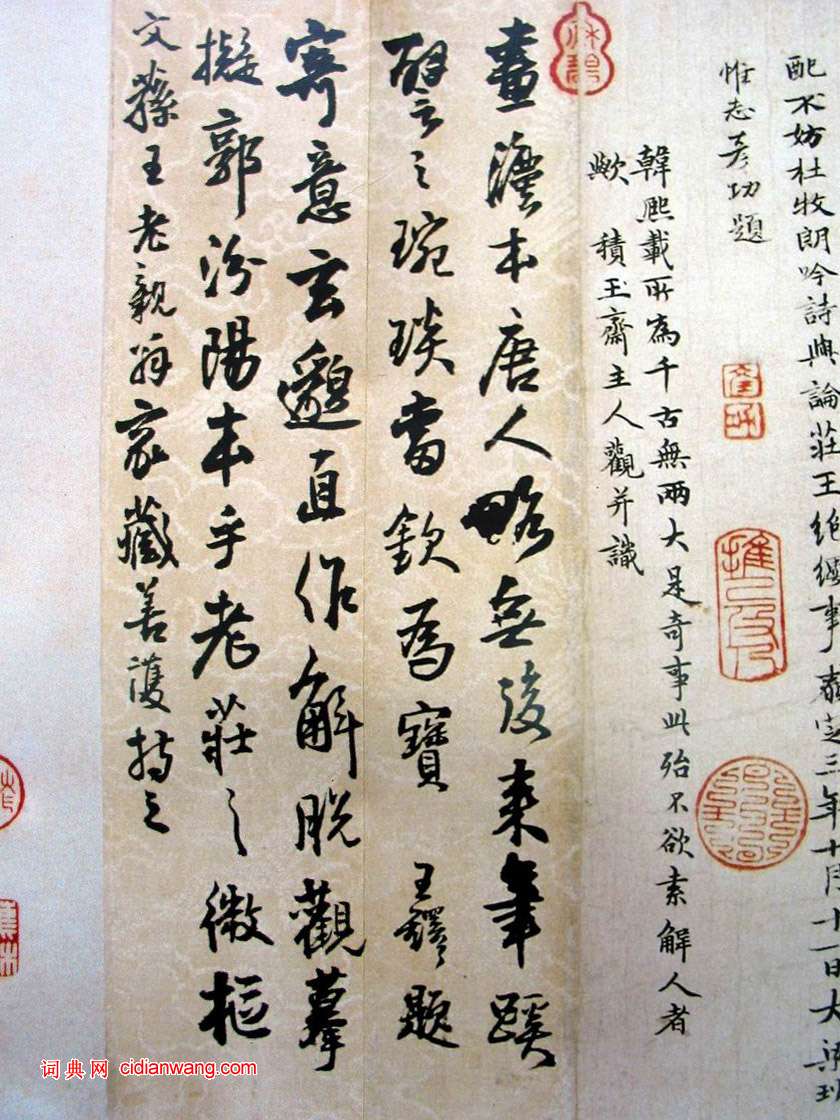 配不妨杜牧朗吟詩與論莊王絕纓事泰定三年十月十一日大梁
惟志彥功題
韓熙載所為千古無兩大是奇事此殆不欲索解人者
歟 積玉齋主人觀并識
畫法本唐人略無後來筆蹊
譬之琬琰當欽為寶 王鐸題
寄意玄邈直作解脫觀摹
擬郭汾陽本乎老莊之微樞
文蓀王老親翁家藏善護持之
词典网 cidianwang.com